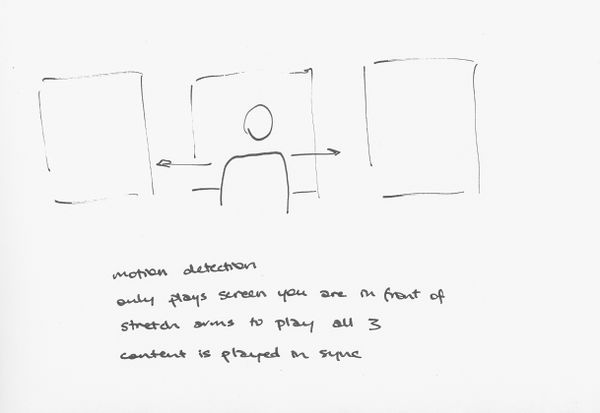 motion detection
only plays screen you are in front of
stretch arms to play all 3
content is played in sync